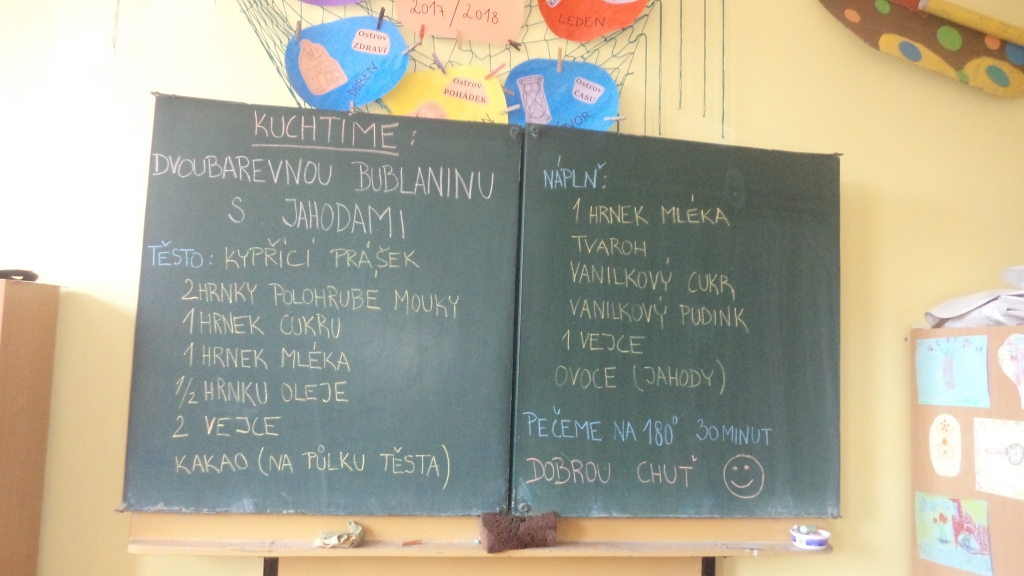 2017/2018
LEDEN
Ostrov
ZDRAVÍ
Ostrov
POHÁDEK
Ostrov
ČASU
KUCHTÍME:
DVOUBAREVNOU BUBLANINU
S JAHODAMI
TĚSTO: KYPŘÍCÍ PRÁŠEK
2 HRNKY POLOHRUBÉ MOUKY
1 HRNEK CUKRU
1 HRNEK MLÉKA
1/2 HRNKU OLEJE
2 VEJCE
KAKAO (NA PŮLKU TĚSTA)
NÁPLŇ:
1 HRNEK MLÉKA
TVAROH
VANILKOVÝ CUKR
VANILKOVÝ PUDINK
1 VEJCE
OVOCE (JAHODY)
PEČEME NA 180° 30 MINUT
DOBROU CHUŤ